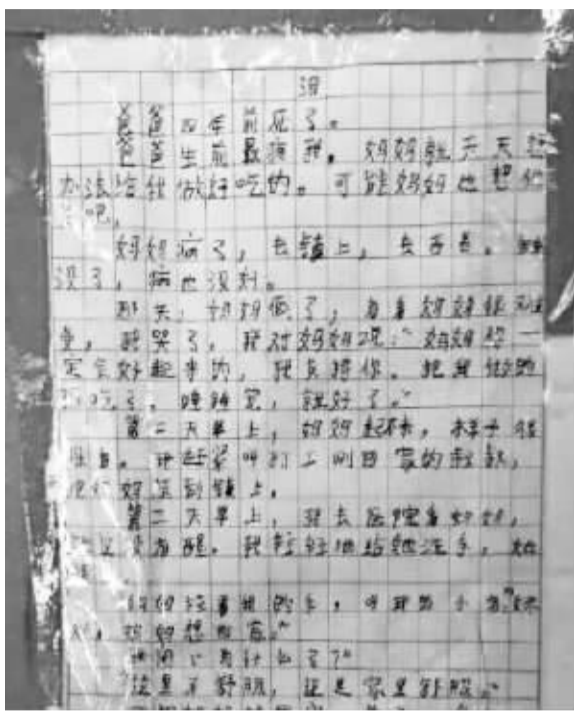 泪
爸爸四年前死了。
爸爸生前最疼我,妈妈就天天想
办法给我做好吃的。可能妈妈也想他
了吧。
妈妈病了,去镇上,去西昌。钱
没了,病也没好。
那天,妈妈倒了,看看妈妈很难
受,我哭了。我对妈妈说:“妈妈你一
定会好起来的,我支持你。把我做的
饭吃了,睡睡觉,就好了。”
第二天早上,妈妈起不来,样子很
难看。我赶紧叫打工刚回家的叔叔,
把妈妈送到镇上。
第三天早上,我去医院看妈妈,
她还没有醒。我轻轻地给她洗手,她
妈妈拉着我的手,叫我的小名:“妹
妹,妈妈想回家。”
我问:“为什么了?”
“这里不舒服,还是家里舒服。”